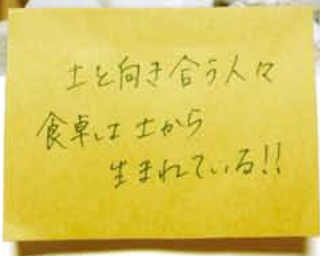 土と向き合う人々
食卓は土から
生まれている!!